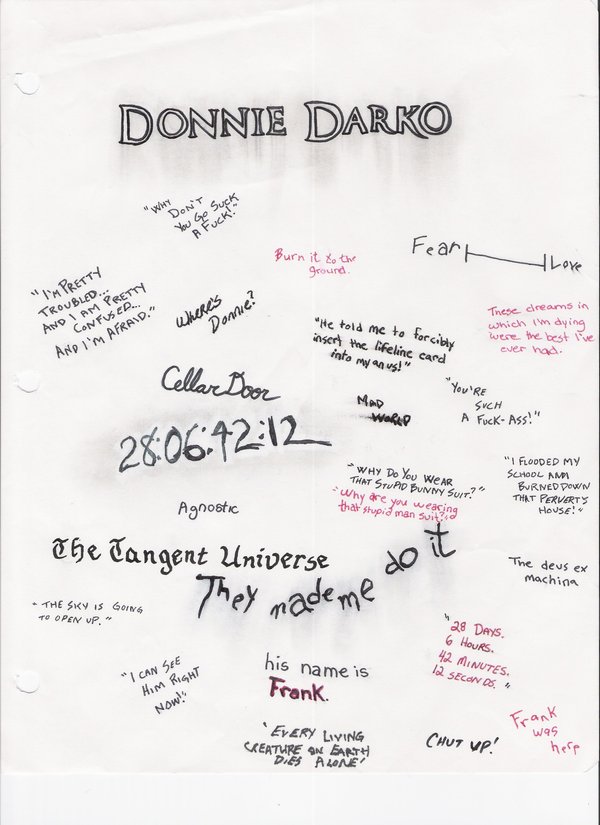 DONNIE DARKO
"WHY
DON'T
YOU GO SUCK
A FUCK!"
Burn it to the
ground.
Fear
Love
"I'M PRETTY
TROUBLED...
AND I AM PRETTY
CONFUSED...
AND I'M AFRAID."
Where's
Donnie?
"He told me to forcibly
insert the lifeline card
into my anus!"
These dreams in
which I'm dying
were the best I've
ever had.
Cellar Door
MAD
WORLD
"YOU'RE
SUCH
A FUCK-ASS!"
28:06:42:12
"WHY DO YOU WEAR
THAT STUPID BUNNY SUIT?"
"Why are you wearing
that stupid man suit?"
"I FLOODED MY
SCHOOL AND I
BURNED DOWN
THAT PERVERT'S
HOUSE!"
Agnostic
The Tangent Universe
They made me do it
The deus ex
machina
"THE SKY IS GOING
TO OPEN UP."
"28 DAYS.
6 HOURS.
42 MINUTES.
12 SECONDS."
"I CAN SEE
HIM RIGHT
NOW!"
his name is
Frank.
'EVERY LIVING
CREATURE ON EARTH
DIES ALONE'
CHUT UP!
Frank
was
here